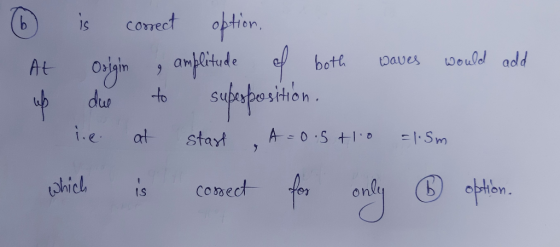 (b) is correct option.
At Origin, amplitude of both waves would add
up due to superposition.
i.e. at start, A = 0.5 + 1.0 = 1.5m
which is correct for only (b) option.